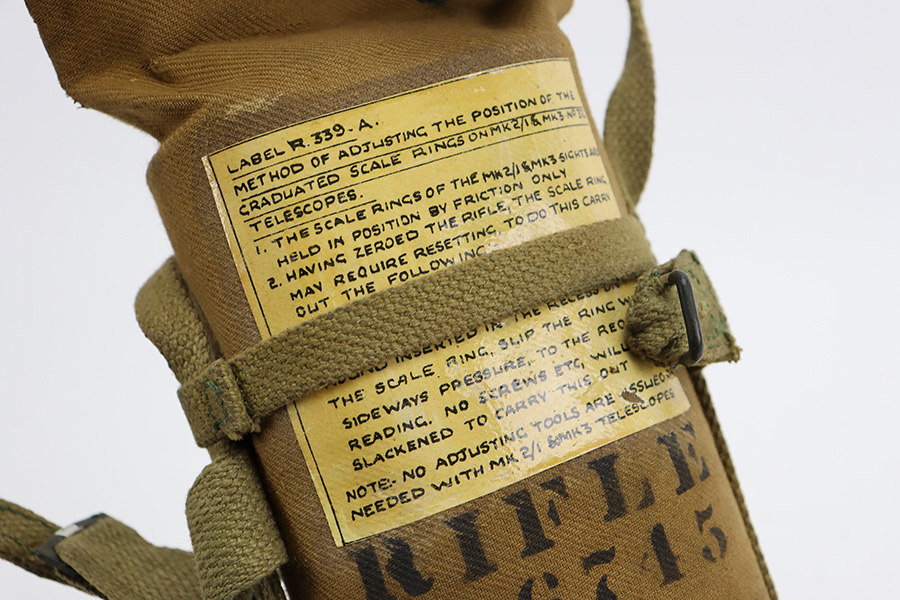 LABEL R. 339-A.
METHOD OF ADJUSTING THE POSITION OF THE
GRADUATED SCALE RINGS ON MK2/1 & MK3 Nº 32
TELESCOPES.
1. THE SCALE RINGS OF THE MK2/1 & MK3 SIGHTS ARE
HELD IN POSITION BY FRICTION ONLY
2. HAVING ZEROED THE RIFLE, THE SCALE RING
MAY REQUIRE RESETTING, TO DO THIS CARRY
OUT THE FOLLOWING
INSERTED IN THE RECESS ON
THE SCALE RING, SLIP THE RING
SIDEWAYS PRESSURE, TO THE
READING. NO SCREWS ETC, WILL
SLACKENED TO CARRY THIS OUT
NOTE:- NO ADJUSTING TOOLS ARE ISSUED
NEEDED WITH MK2/1 & MK3 TELESCOPES
RIFLE
6745